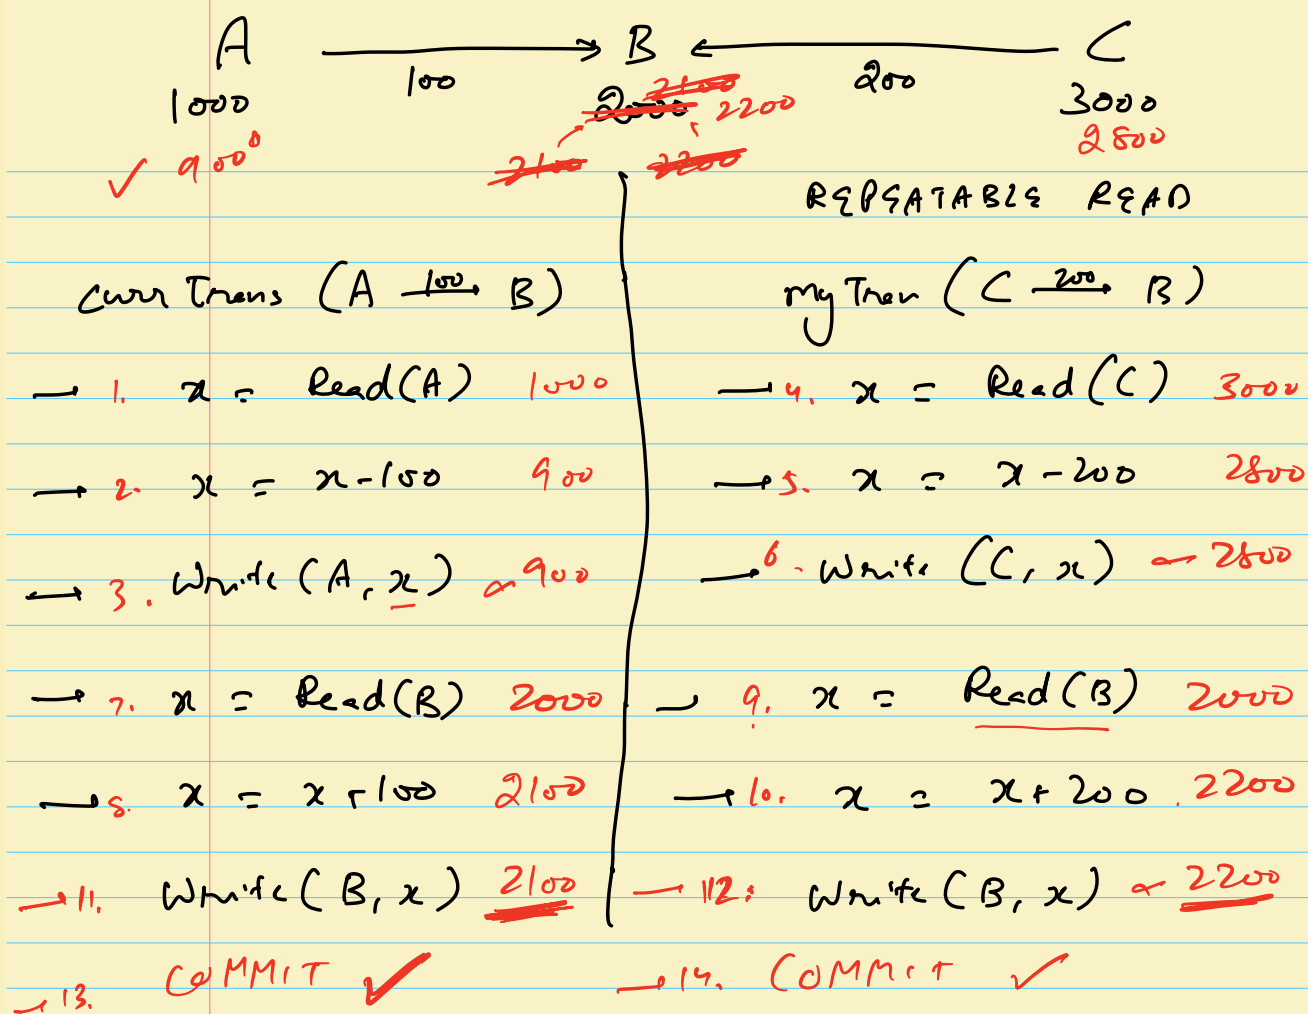 A → B ← C
100 200
1000 2000 2100 2200 3000
✓ 900 2100 2200 2800
REPEATABLE READ
Curr Trans (A 100→ B)
→ 1. x = Read(A) 1000
→ 2. x = x-100 900
→ 3. Write (A, x) ← 900
→ 7. x = Read(B) 2000
→ 8. x = x+100 2100
→ 11. Write (B, x) 2100
→ 13. COMMIT ✓
my Tran (C 200→ B)
→ 4. x = Read(C) 3000
→ 5. x = x-200 2800
→ 6. Write (C, x) ← 2800
9. x = Read(B) 2000
→ 10. x = x+200 2200
→ 12. Write (B, x) ← 2200
→ 14. COMMIT ✓